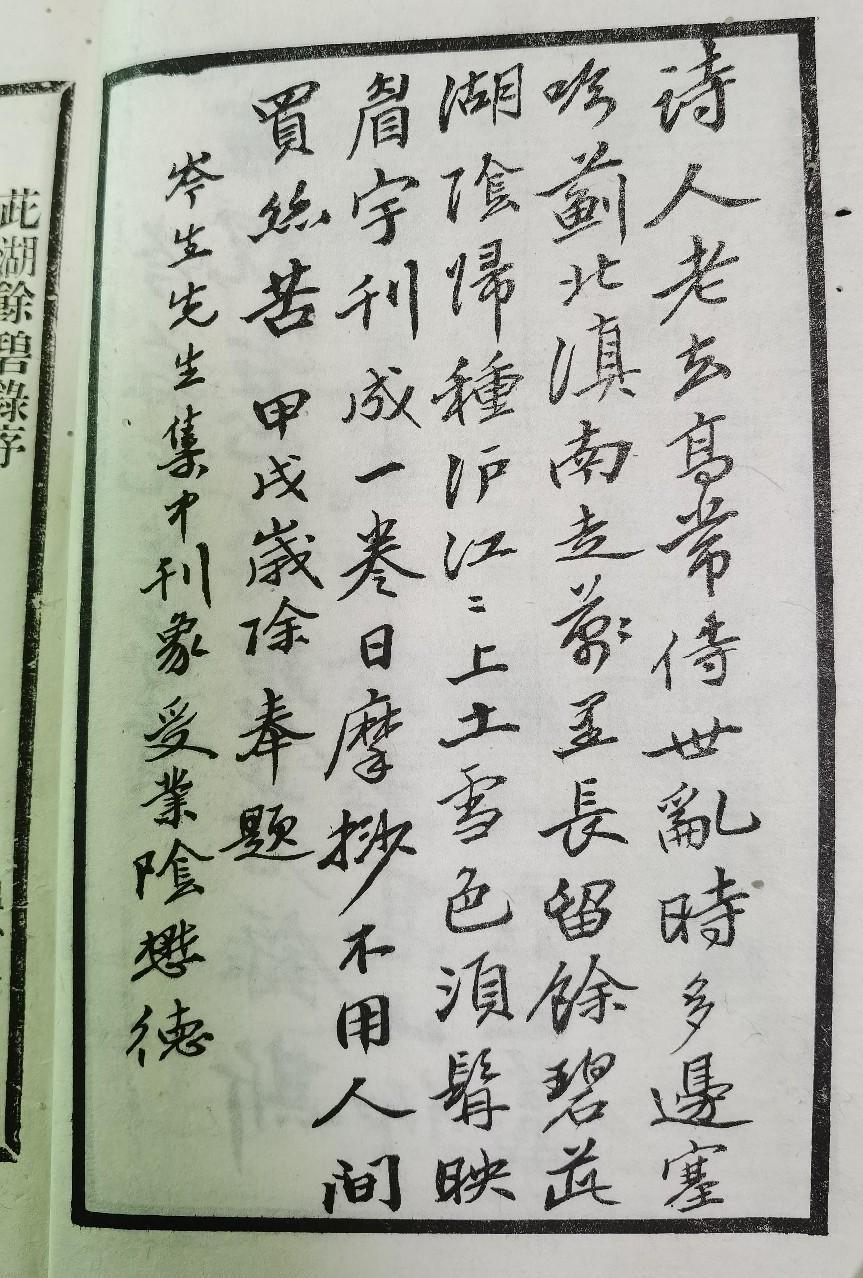 詩人老去高常侍世亂時多邊塞
吟薊北滇南走萬里長留餘碧茈
湖陰歸種沪江〻上土雪色須髯映
眉宇刊成一卷日摩挱不用人間
買絲苦 甲戌歲除 奉題
岑生先生集中刊象受業陰懋德
茈湖餘碧錄序